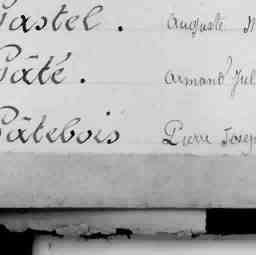 Gastel . Auguste
Gâté . Armand Jul
Gâtebois Pierre Josep